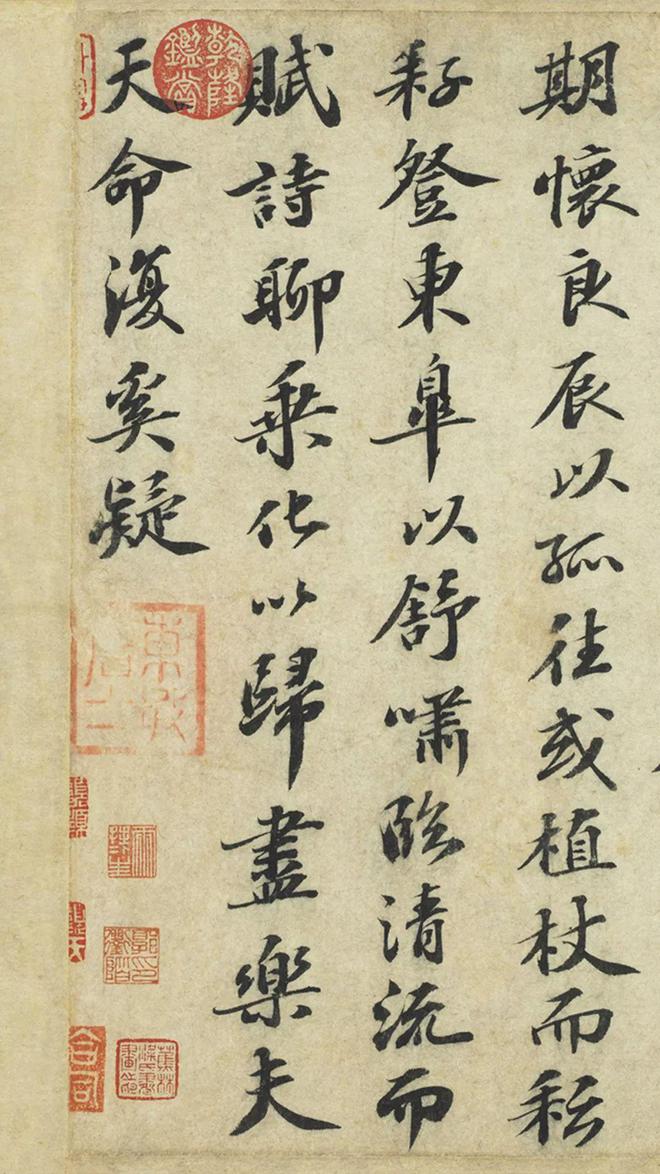 期懷良辰以孤往或植杖而耘
耔登東皐以舒嘯臨清流而
賦詩聊乗化以歸盡樂夫
天命復奚疑
乾隆鑑賞